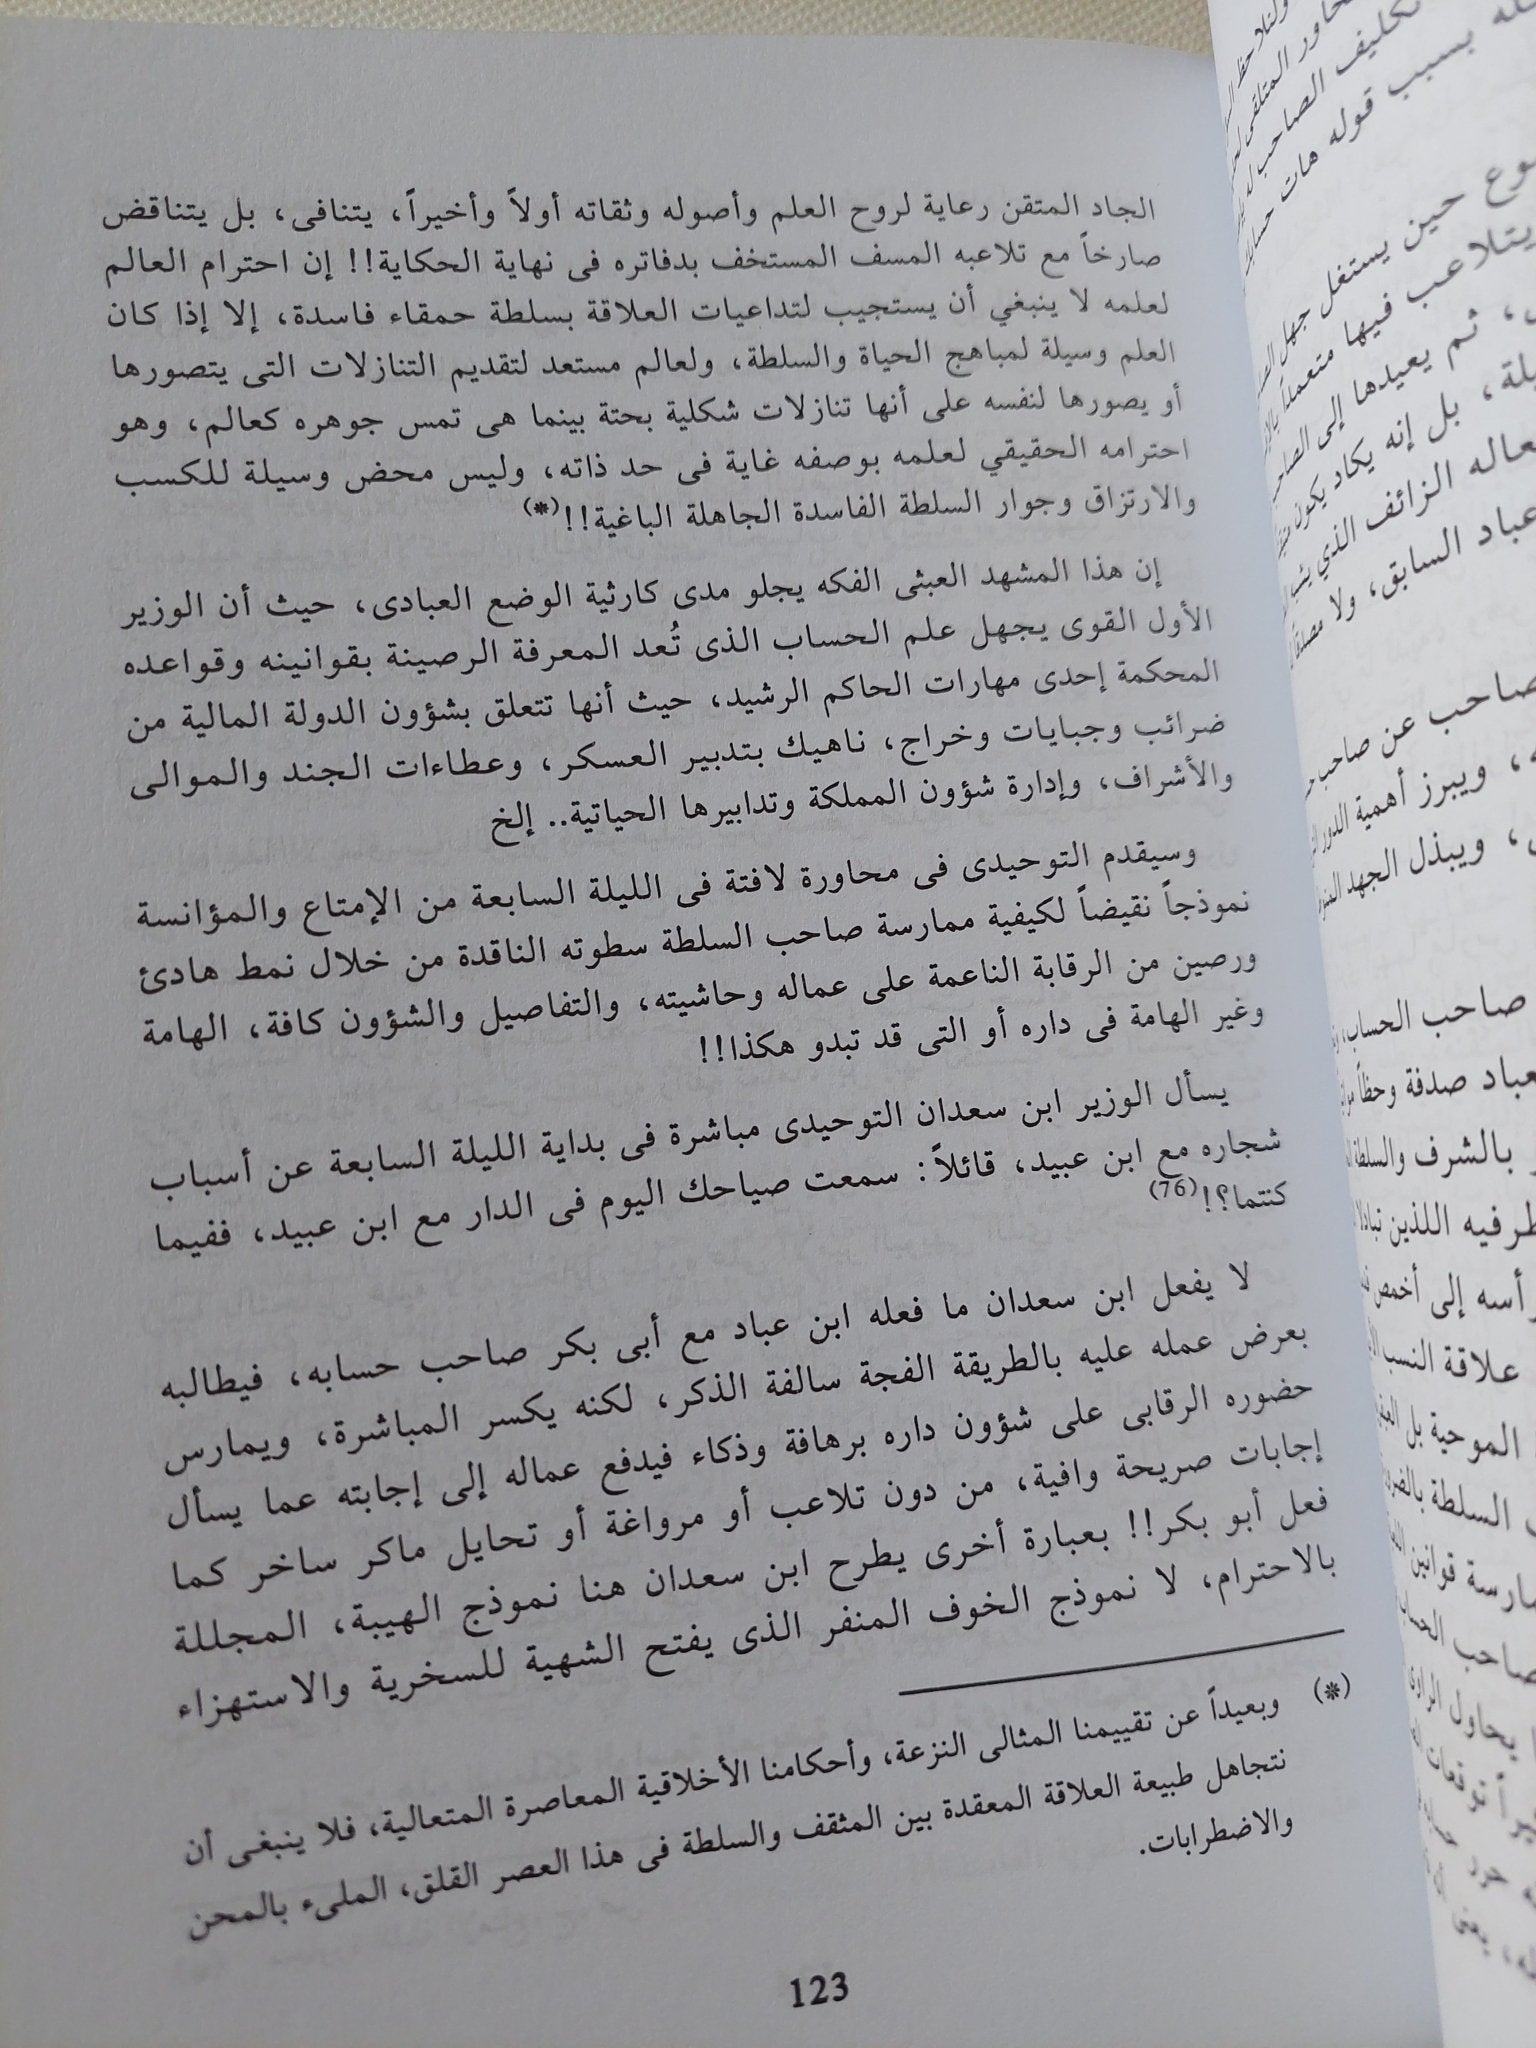 الجاد المتقن رعاية لروح العلم وأصوله وثقاته أولاً وأخيراً، يتنافى، بل يتناقض
صارخاً مع تلاعبه المسف المستخف بدفاتره فى نهاية الحكاية!! إن احترام العالم
لعلمه لا ينبغي أن يستجيب لتداعيات العلاقة بسلطة حمقاء فاسدة، إلا إذا كان
العلم وسيلة لمباهج الحياة والسلطة، ولعالم مستعد لتقديم التنازلات التى يتصورها
أو يصورها لنفسه على أنها تنازلات شكلية بحتة بينما هى تمس جوهره كعالم، وهو
احترامه الحقيقي لعلمه بوصفه غاية فى حد ذاته، وليس محض وسيلة للكسب
والارتزاق وجوار السلطة الفاسدة الجاهلة الباغية!!(*)
إن هذا المشهد العبثى الفكه يجلو مدى كارثية الوضع العبادى، حيث أن الوزير
الأول القوى يجهل علم الحساب الذى تُعد المعرفة الرصينة بقوانينه وقواعده
المحكمة إحدى مهارات الحاكم الرشيد، حيث أنها تتعلق بشؤون الدولة المالية من
ضرائب وجبايات وخراج، ناهيك بتدبير العسكر، وعطاءات الجند والموالى
والأشراف، وإدارة شؤون المملكة وتدابيرها الحياتية.. إلخ
وسيقدم التوحيدى فى محاورة لافتة فى الليلة السابعة من الإمتاع والمؤانسة
نموذجاً نقيضاً لكيفية ممارسة صاحب السلطة سطوته الناقدة من خلال نمط هادئ
ورصين من الرقابة الناعمة على عماله وحاشيته، والتفاصيل والشؤون كافة، الهامة
وغير الهامة فى داره أو التى قد تبدو هكذا!!
يسأل الوزير ابن سعدان التوحيدى مباشرة فى بداية الليلة السابعة عن أسباب
شجاره مع ابن عبيد، قائلاً: سمعت صياحك اليوم فى الدار مع ابن عبيد، ففيما
كنتما؟!(76)
لا يفعل ابن سعدان ما فعله ابن عباد مع أبى بكر صاحب حسابه، فيطالبه
بعرض عمله عليه بالطريقة الفجة سالفة الذكر، لكنه يكسر المباشرة، ويمارس
حضوره الرقابى على شؤون داره برهافة وذكاء فيدفع عماله إلى إجابته عما يسأل
إجابات صريحة وافية، من دون تلاعب أو مرواغة أو تحايل ماكر ساخر كما
فعل أبو بكر!! بعبارة أخرى يطرح ابن سعدان هنا نموذج الهيبة، المجللة
بالاحترام، لا نموذج الخوف المنفر الذى يفتح الشهية للسخرية والاستهزاء
(*) وبعيداً عن تقييمنا المثالى النزعة، وأحكامنا الأخلاقية المعاصرة المتعالية، فلا ينبغى أن
نتجاهل طبيعة العلاقة المعقدة بين المثقف والسلطة فى هذا العصر القلق، الملىء بالمحن
والاضطرابات.
123
تكليف الصاحب له
بسبب قوله هات
حين يستغل جهل
يتلاعب فيها متعملاً
ثم يعيدها إلى
بل إنه يكاد يكون
الزائف الذي
عباد السابق، ولا
عن صاحب
ويبرز أهمية الدور
ويبذل الجهد
صاحب الحساب،
صدفة وحظاً
بالشرف والسلطة
اللذين تبادلا
إلى أخمص
علاقة النسب
الموحية بل
السلطة
قوانين
صاحب الحساب
يحاول الراوى
توقعات